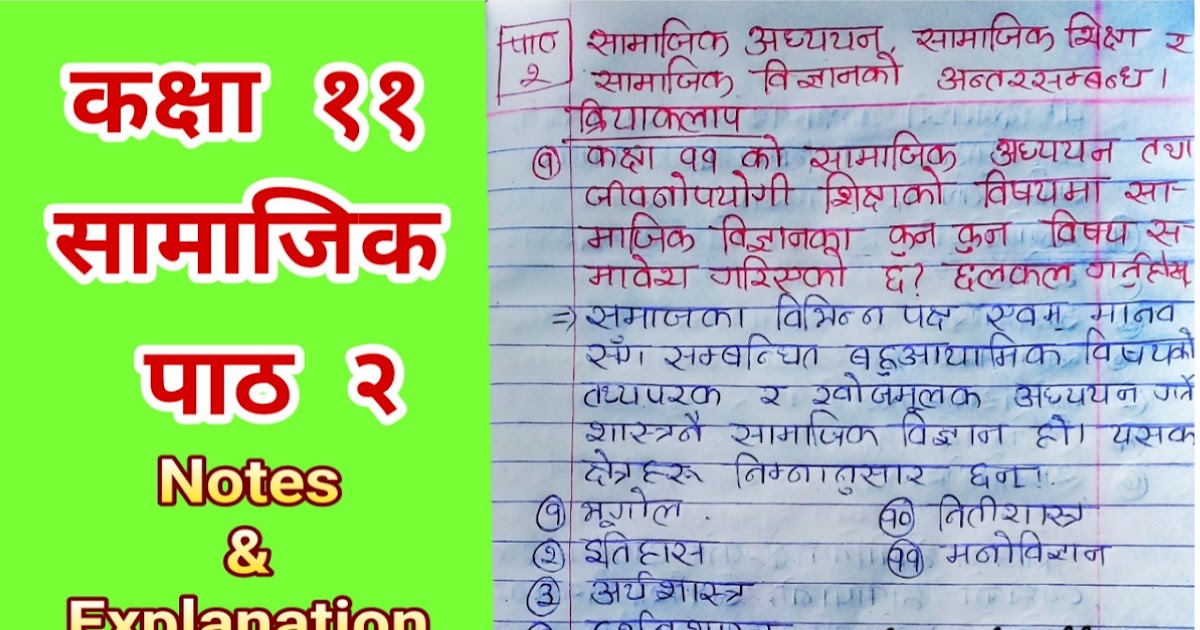 कक्षा ११
सामाजिक
पाठ २
Notes
&
Explanation
पाठ
२
सामाजिक अध्ययन, सामाजिक शिक्षा र
सामाजिक विज्ञानको अन्तरसम्बन्ध।
क्रियाकलाप
१ कक्षा ११ को सामाजिक अध्ययन तथा
जीवनोपयोगी शिक्षाको विषयमा सा-
माजिक विज्ञानका कुन कुन विषय स-
मावेश गरिएको छ? छलफल गर्नुहोस्
=> समाजका विभिन्न पक्ष एवम् मानव
सँग सम्बन्धित बहुआयामिक विषयको
तथ्यपरक र खोजमूलक अध्ययन गर्ने
शास्त्रनै सामाजिक विज्ञान हो। यसका
क्षेत्रहरू निम्नानुसार छन्।
१ भूगोल
१० नितीशास्त्र
२ इतिहास
११ मनोविज्ञान
३ अर्थशास्त्र